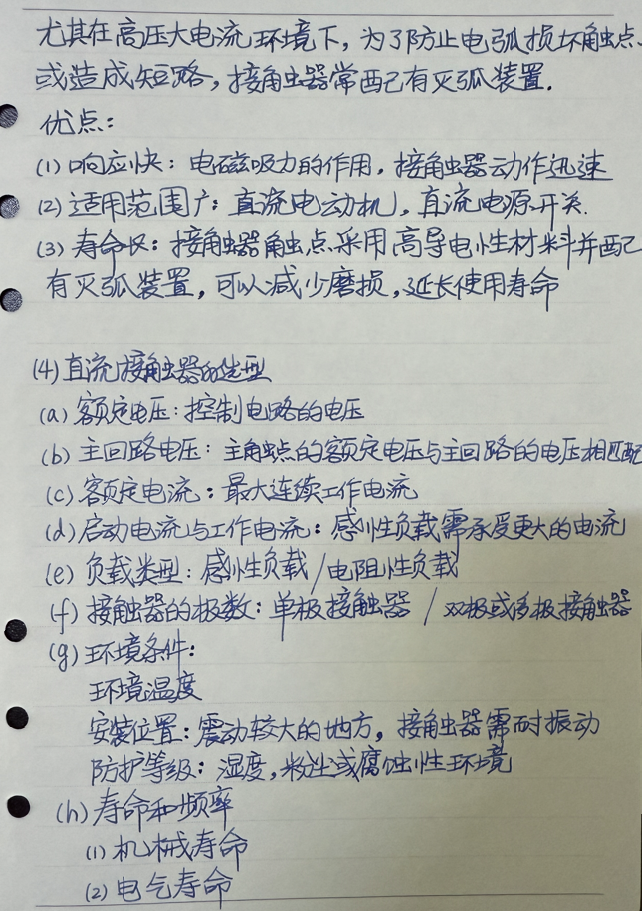 尤其在高压大电流环境下，为了防止电弧损坏触点、
或造成短路，接触器常配有灭弧装置.
优点：
(1) 响应快：电磁吸力的作用，接触器动作迅速
(2) 适用范围广：直流电动机，直流电源开关.
(3) 寿命长：接触器触点采用高导电性材料并配
有灭弧装置，可以减少磨损，延长使用寿命
(4) 直流接触器的选型
(a) 额定电压：控制电路的电压
(b) 主回路电压：主触点的额定电压与主回路的电压相匹配
(c) 额定电流：最大连续工作电流
(d) 启动电流与工作电流：感性负载需承受更大的电流
(e) 负载类型：感性负载/电阻性负载
(f) 接触器的极数：单极接触器 / 双极或多极接触器
(g) 环境条件：
环境温度
安装位置：震动较大的地方，接触器需耐振动
防护等级：湿度，粉尘或腐蚀性环境
(h) 寿命和频率
(1) 机械寿命
(2) 电气寿命